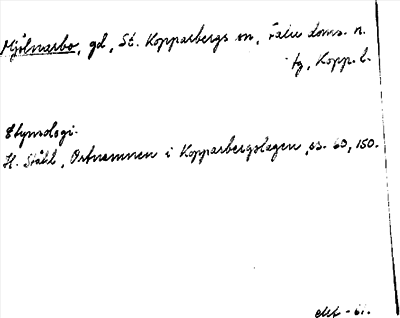 Mjölnarbo, gd, St. Kopparbergs sn, Falu doms. n.
tg, Kopp. l.
Etymologi.
H. Ståhl, Ortnamnen i Kopparbergslagen, ss. 69, 150.
-61.